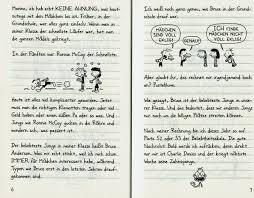 Mamma, ich hab echt KEINE AHNUNG, was heut-
zutage mit den Mädchen los ist. Früher, in der
Grundschule, war alles ganz einfach. Wenn man in
seiner Klasse der schnellste Läufer war, hat man
die ganzen Mädels abgekriegt.
In der Fünften war Ronnie McCoy der Schnellste.
Heute ist alles viel komplizierter geworden. Jetzt
muss man die richtigen Klamotten tragen oder viel
Geld haben oder einen süßen Po oder so was. Und
Jungs wie Ronnie McCoy gucken in die Röhre und
wundern sich, was passiert ist.
Der beliebteste Junge in meiner Klasse heißt Bryce
Anderson. Was mir echt stinkt, weil ich mich schon
IMMER für Mädchen interessiert habe, während
Typen wie Bryce erst in den letzten Jahren drauf-
gekommen sind.
6
Ich weiß noch ganz genau, wie Bryce in der Grund-
schule drauf war.
MÄDCHEN
SIND VOLL
EKLIG!
GENAU!
ICH FINDE
MÄDCHEN NICHT
VOLL EKLIG!
Aber glaubt ihr, das rechnet mir irgendjemand hoch
an? Pustekuchen.
Wie gesagt, Bryce ist der beliebteste Junge in unse-
rer Klasse, und wir anderen Jungs müssen uns nun
um die übrigen Plätze streiten können.
Nach meiner Rechnung bin ich dieses Jahr so auf
Platz 52 oder 53 der Beliebtheitsskala. Die gute
Nachricht: Bald werde ich aufrücken, denn direkt
vor mir ist Charlie Davies und der kriegt nächste
Woche seine Zahnspange.
7